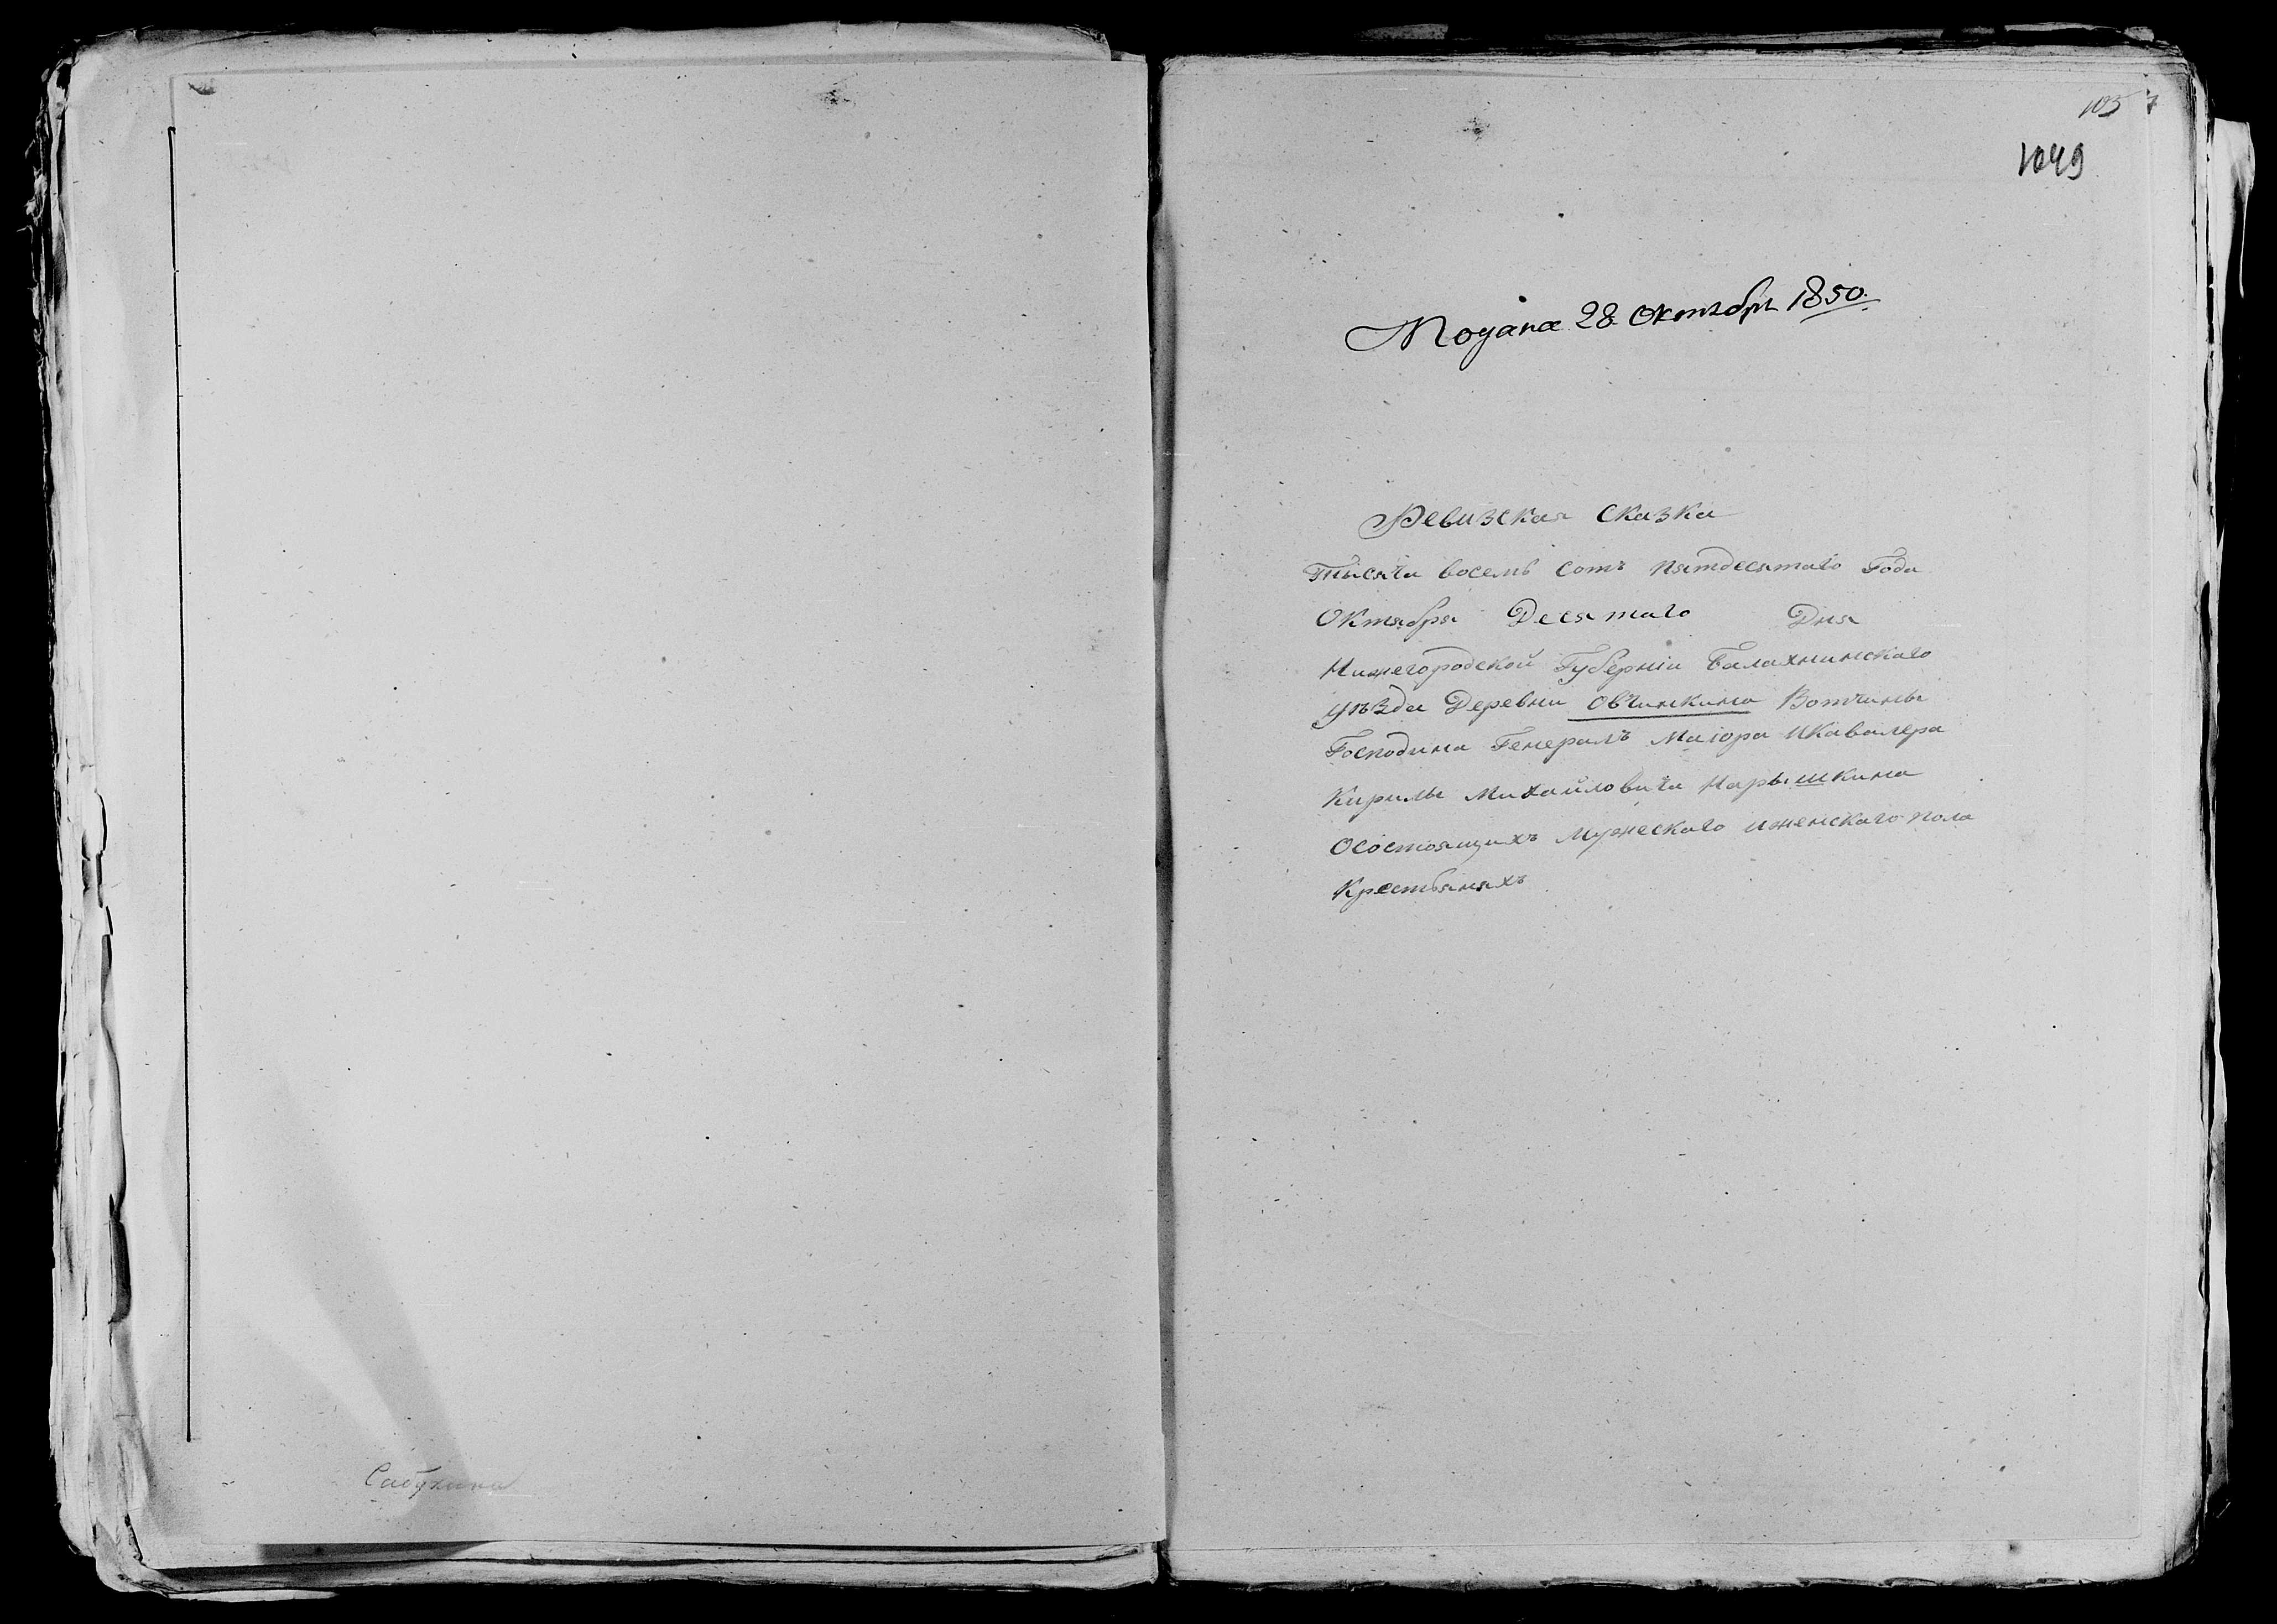 Сабухина
1049
Подана 28 Октября 1850.
Ревизская Сказка
Тысяча восемь Сотъ пятдесятаго Года
Октября Десятаго Дня
Нижегородской Губерніи Балахнинскаго
Уѣзда Деревни Овчинкина Вотчины
Господина Генералъ Маіора ИКавалера
Кирилы Михайловича Нарышкина
Осостоящихъ Мужескаго иженскаго пола
Крестьянахъ